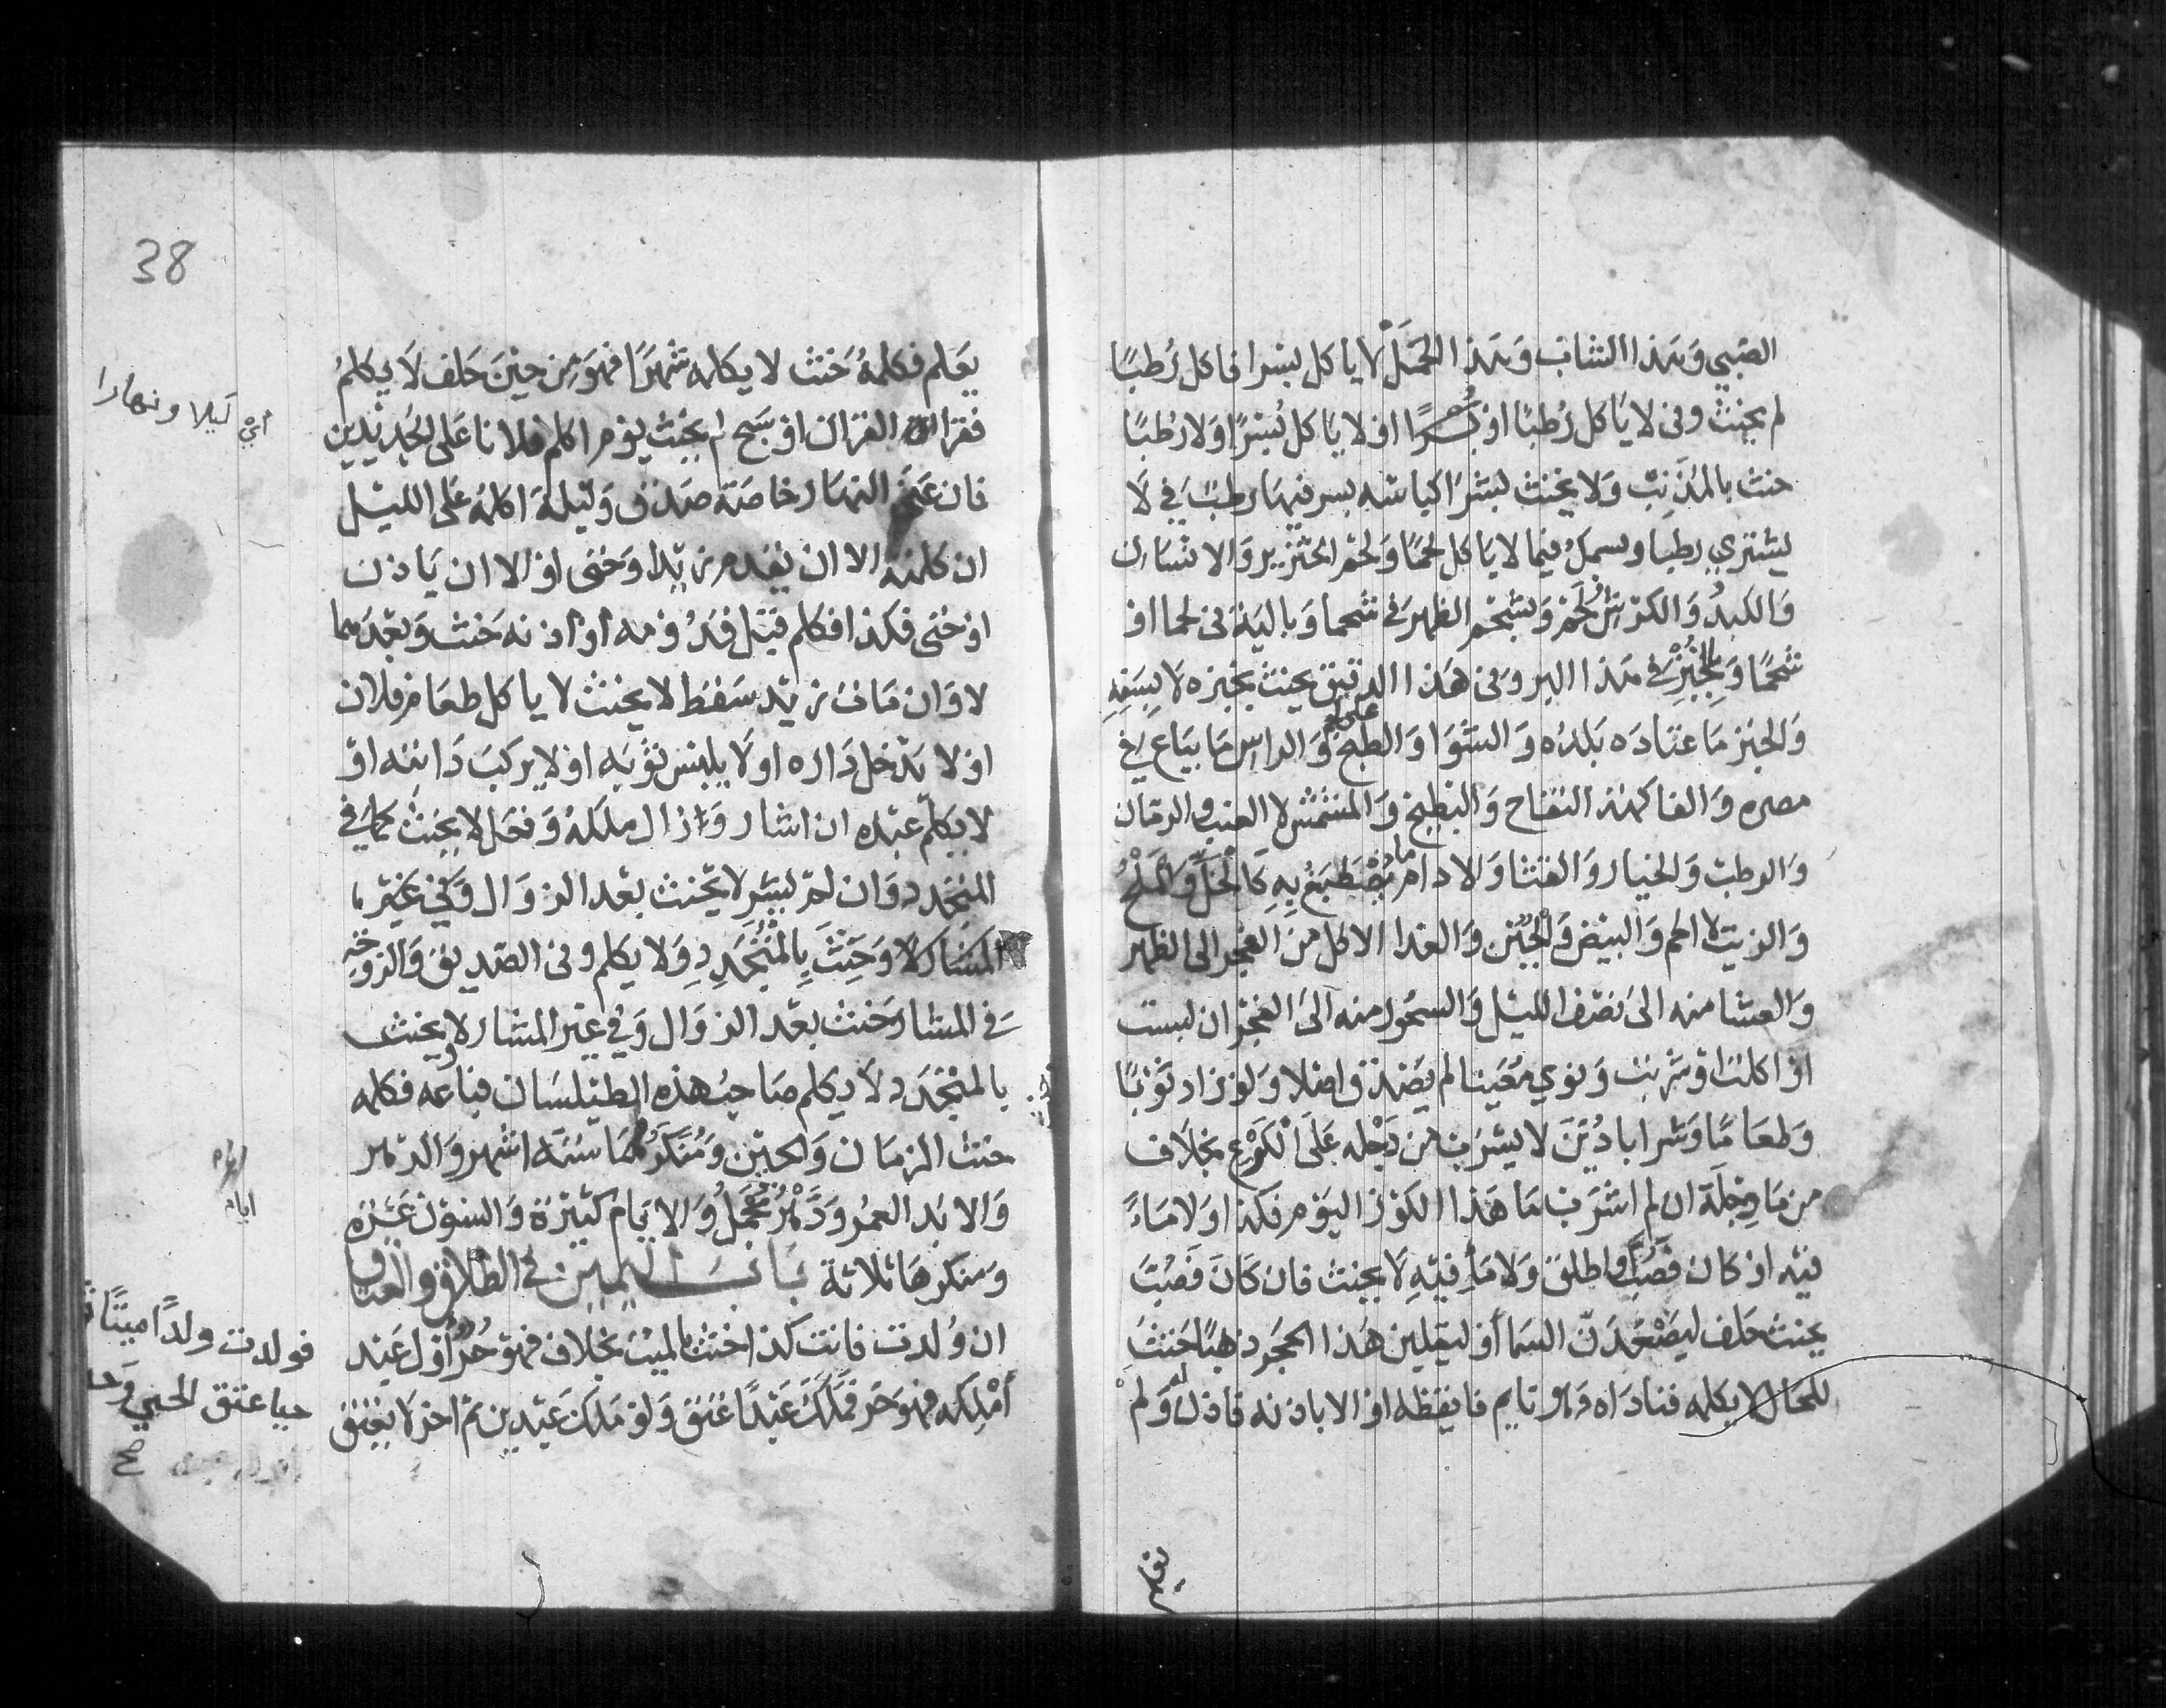 الصبي وهذا الشاب وهذا الحمل لا ياكل بسرا فاكل رطبا
لم يحنث وفي لا ياكل رطبا او بسرا او لا ياكل بسرا ولا رطبا
حنث بالمذنب ولا يحنث بشرا كباسه بسر فيها رطب في لا
يشتري رطبا وسمك فيما لا ياكل لحما ولحم الخنزير والانسان
والكبد والكرش لحم وبشحم الظهر في شحما وبالية في لحما او
شحما وبالخبز في هذا البر وفي هذا الدقيق يحنث بخبزه لا بسفه
والخبز ما اعتاده بلده والشوا والطبخ على اللحم والراس ما يباع في
مصره والفاكهة التفاح والبطيخ والمشمش لا العنب والرمان
والرطب والخيار والقثا والادام ما يصطبغ به كالخل والملح
والزيت لا اللحم والبيض والجبن والغدا الاكل من الفجر الى الظهر
والعشا منه الى نصف الليل والسحور منه الى الفجر ان لبست
او اكلت او شربت ونوي معينا لم يصدق اصلا ولو زاد ثوبا
وطعاما وشرابا دين لا يشرب من دجله على الكرع بخلاف
من ما دجلة ان لم اشرب ما هذا الكوز اليوم فكذا ولا ماء
فيه او كان فصب او اطلق ولا ما فيه لا يحنث فان كان فصبت
يحنث حلف ليصعدن السما او ليقلبن هذا الحجر ذهبا حنث
للحال لا يكلمه فناداه وهو نايم فايقظه او الا باذنه فاذن له ولم
يعلم
38
يعلم فكلمه حنث لا يكلمه شهرا فهو من حين حلف لا يكلم
فقرا القران او سبح لم يحنث يوم اكلم فلانا على الجديدين
اي ليلا ونهارا
فان عني النهار خاصة صدق وليلة اكلمه على الليل
ان كلمته الا ان يقدم زيد او حتى او الا ان ياذن
او حتى فكذا فكلم قبل قدومه او اذنه حنث وبعدهما
لا وان مات زيد سقط لا يحنث لا ياكل طعام فلان
او لا يدخل داره او لا يلبس ثوبه او لا يركب دابته او
لا يكلم عبده ان اشار وزال ملكه وفعل لا يحنث كما في
المتجدد وان لم يشر لا يحنث بعد الزوال وفي غير
المشار لا وحنث بالمتجدد ولا يكلم وفي الصديق والزوجة
في المشار حنث بعد الزوال وفي غير المشار لا ويحنث
بالمتجدد لا يكلم صاحب هذه الطيلسان فباعه فكلمه
حنث الزمان والحين ومنكرهما ستة اشهر والدهر
والابد العمر ودهر مجمل والايام كثيرة والسنون عشرة
ومنكرها ثلاثة باب اليمين في الطلاق والعتاق
ان ولدت فانت كذا حنث بالميت بخلاف فهو حر اول عبد
املكه فهو حر فملك عبدا عتق ولو ملك عبدين ثم اخر لا يعتق
ايام
فولدت ولدا ميتا
حيا عتق الحي
صح